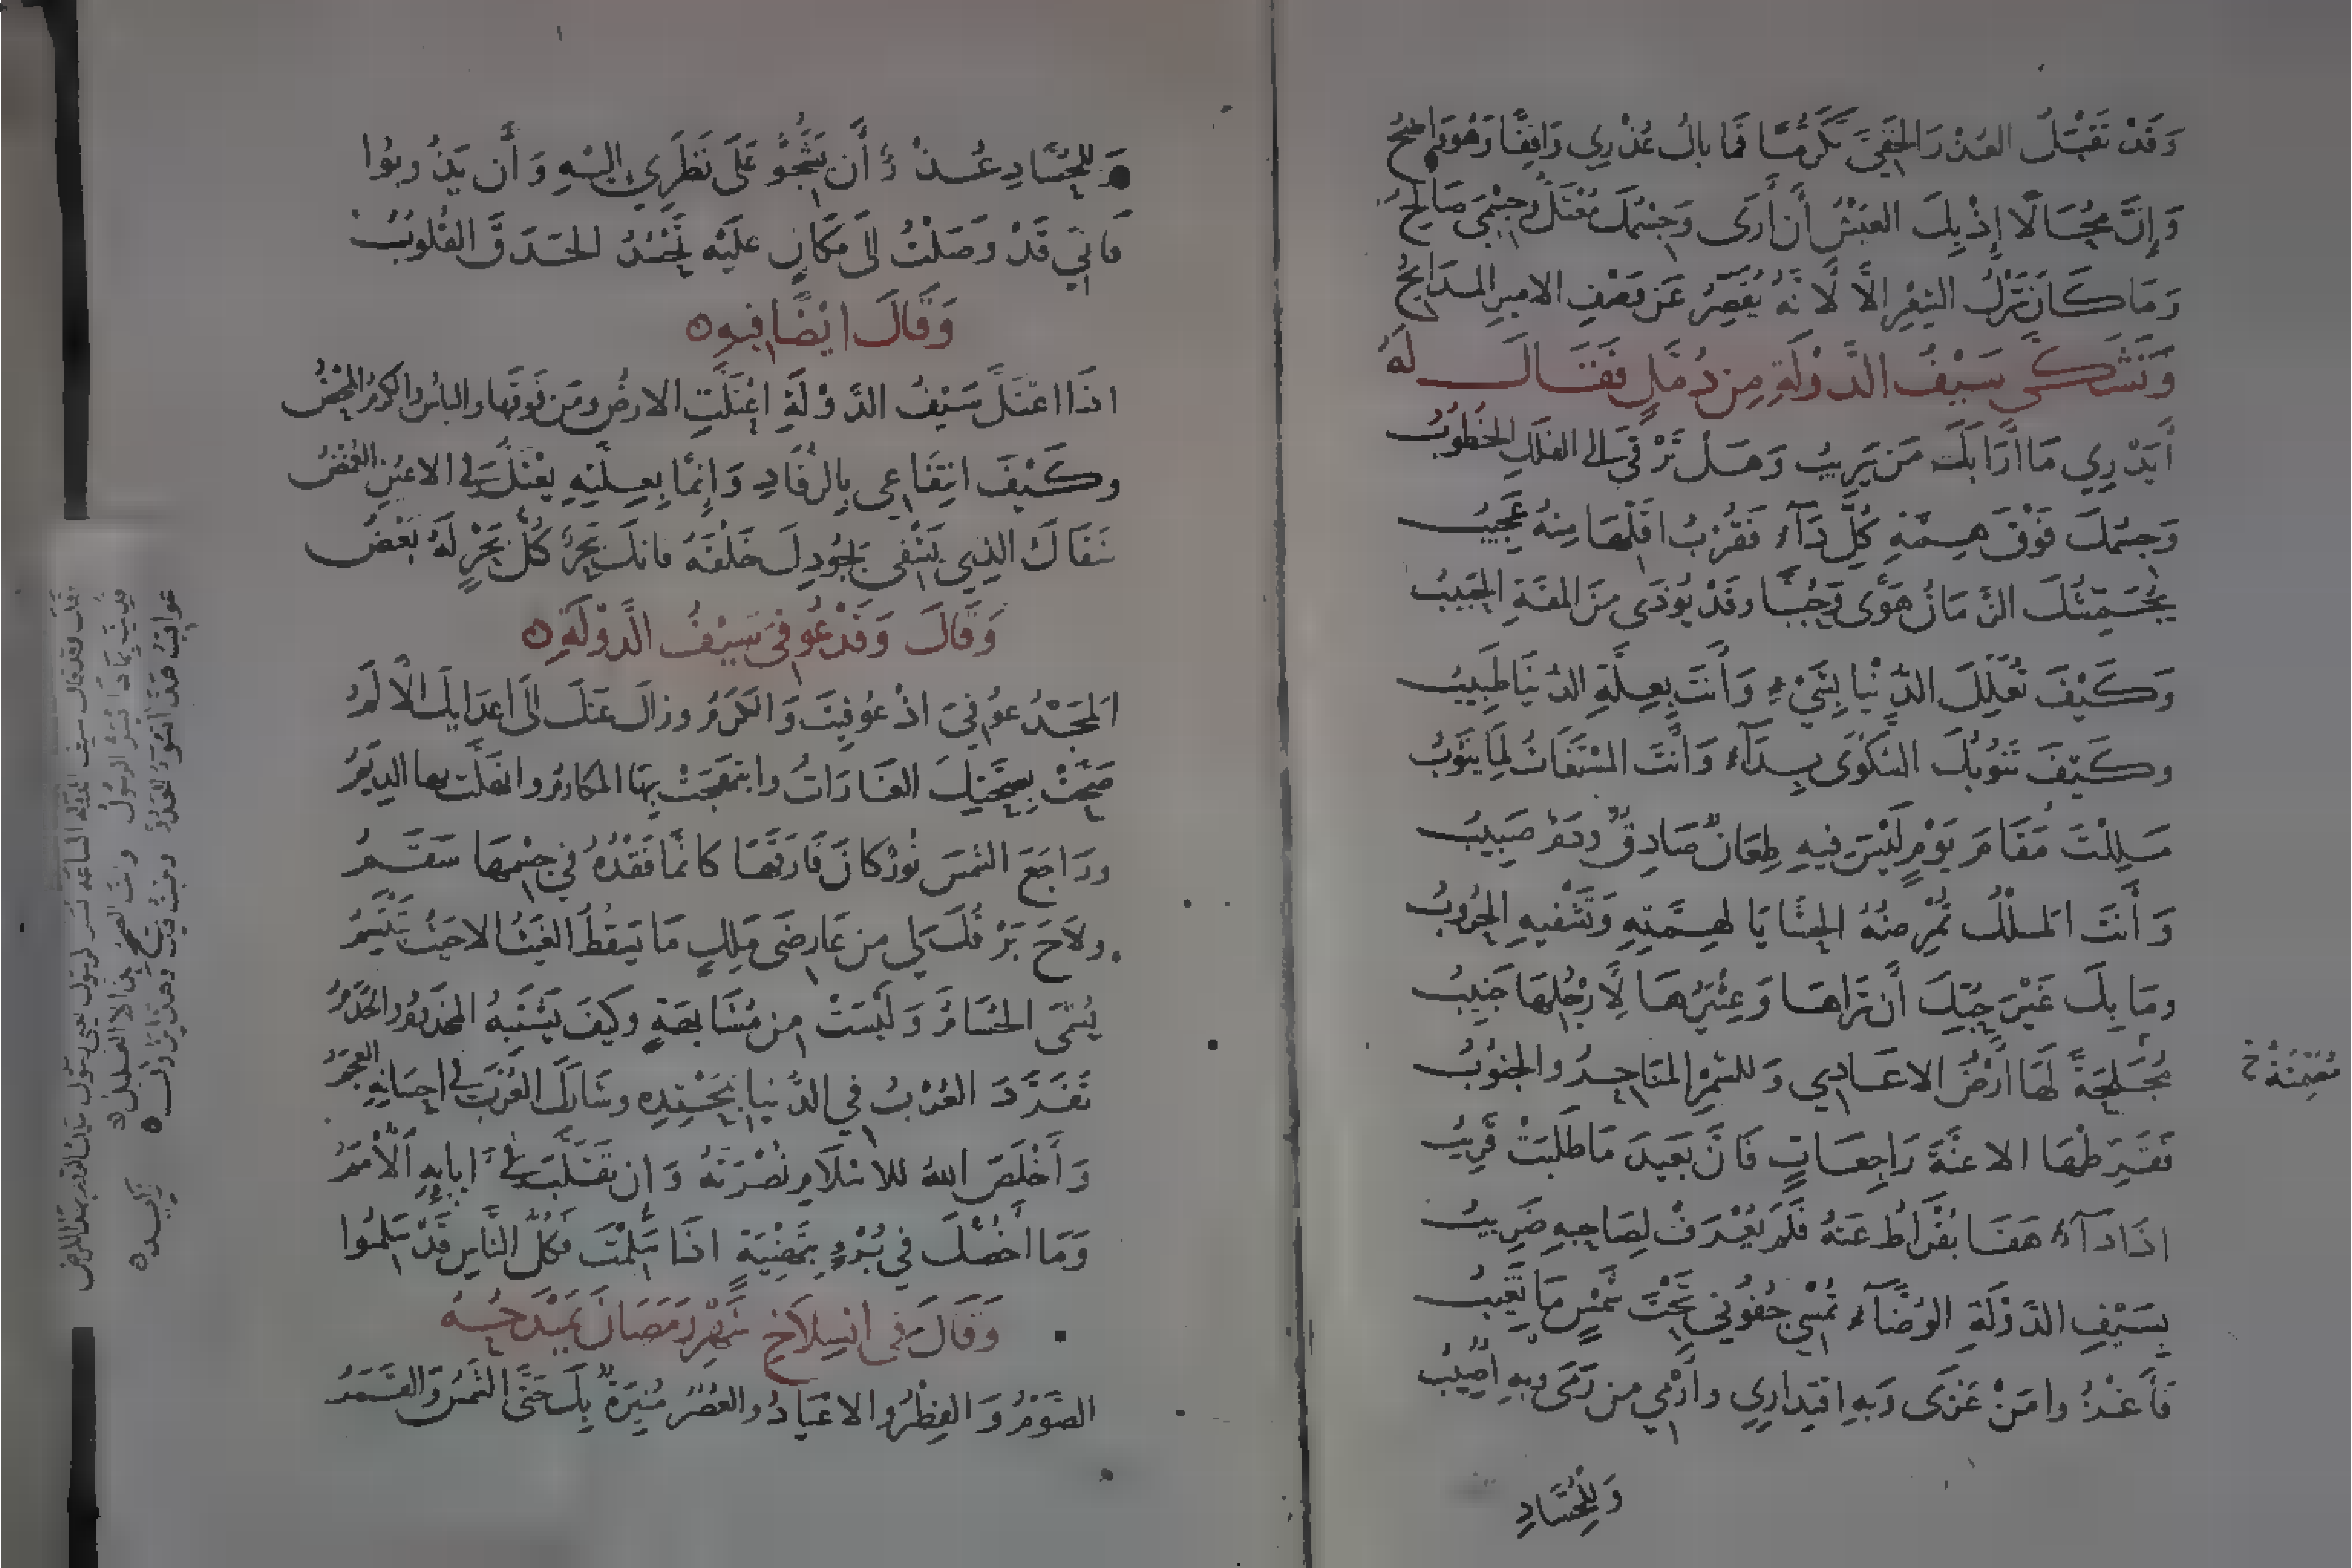 وَقَدْ تَقْبَلُ العُذْرَ الخَفِيَّ تَكَرُّمًا فَمَا بَالُ عُذْرِي وَاقِفًا وَهُوَ وَاضِحُ
وَإِنَّ مُحَالًا إِذْ بِكَ العَيْشُ أَن أَرَى وَجِسْمُكَ مُعْتَلٌّ وَجِسْمِي صَالِحُ
وَمَا كَانَ تَرْكُ الشِعْرِ إلَّا لَانَّهُ يُقَصِّرُ عَن وَصْفِ الامِيرِ المَدَايحُ
وَتَشَكَّى سَيْفُ الدَّوْلَةِ مِن دُمَّلٍ فَقَالَ لَهُ
أَيَدْرِي مَا أَرَابَكَ مَن يُرِيبُ وَهَلْ تَرْقَى الى الفَلَكِ الخُطُوبُ
وَجِسْمُكَ فَوْقَ هِمَّةِ كُلِّ دَآءٍ فَقُرْبُ اقَلِّهَا مِنهُ عَجِيبُ
يُجَشِّمُكَ الزَّمَانُ هَوًى وَحُبًّا وقَدْ يُوذَى مِنَ المِقَةِ الحَبِيبُ
وَكَيْفَ تُعِلُّكَ الدُّنْيَا بِشَيْءٍ وَأَنتَ بِعِلَّةِ الدُّنيَا طَبِيبُ
وكَيْفَ تَنُوبُكَ الشَّكْوَى بِدَآءٍ وَأَنتَ المُسْتَغَاثُ لِمَا يَنُوبُ
مَلِلْتَ مُقَامَ يَوْمٍ لَيْسَ فِيهِ طِعَانٌ صَادِقٌ ودَمٌ صَبِيبُ
وَأَنتَ المَلْكُ تُمْرِضُهُ الحَشَايَا لِهِمَّتِهِ وَتَشْفِيهِ الحُرُوبُ
ومَا بِكَ غَيْرُ حُبِّكَ أَن تَرَاهَا وَعِثْيَرُهَا لِأَرْجُلِهَا جَنِيبُ
مُجَلِّحَةً لَهَا أَرْضُ الاعَادِي وَللسُّمْرِ المَنَاحِرُ والجُنُوبُ
فَقَرِّطْهَا الاعِنَّةَ رَاجِعَاتٍ فَانَّ بَعِيدَ مَا طَلَبَتْ قَرِيبُ
اذَا دَآءٌ هَفَا بُقْرَاطُ عَنهُ فَلَمْ يُعْرَفْ لِصَاحِبِهِ ضَرِيبُ
بِسَيْفِ الدَّوْلَةِ الوُضَّآءِ تُمْسِي جُفُونِي تَحْتَ شَمْسٍ مَا تَغِيبُ
فَأَغْزُوا مَنْ غَزَى وَبِهِ اقتِدَارِي وأَرْمِي مَن رَمَى وَبِهِ أُصِيبُ
وَلِلْحُسَّادِ
وَللحُسَّادِ عُذْرٌ أَن يَشُحُّوا عَلَى نَظَرِي إِلَيْهِ وَأَن يَذُوبُوا
فَانِّي قَدْ وَصَلْتُ الى مَكَانٍ عَلَيْهِ تَحْسُدُ الحَدَقَ القُلُوبُ
وَقَالَ ايْضًا فِيهِ
اذَا اعتَلَّ سَيْفُ الدَّوْلَةِ اعْتَلَّتِ الارضُ ومَن فَوقَهَا والبَاسُ والكَرَمُ المَحْضُ
وكَيْفَ انتِفَاعِي بِالرُّقَادِ وَإِنَّمَا بِعِلَّتِهِ يَعْتَلُّ فى الاعيُنِ الغُمْضُ
شَفَاكَ الذِي يَشْفِى بِجُودِكَ خَلْقَهُ فانكَ بَحْرٌ كُلُّ بَحْرٍ لَهُ بَعْضُ
وَقَالَ وَقَدْ عُوفِيَ سَيْفُ الدَّوْلَةِ
المَجْدُ عُوفِيَ اذْ عُوفِيتَ وَالكَرَمُ وزَالَ عَنكَ الَى أَعدَايكَ الأَلَمُ
صَحَّتْ بِصِحَّتِكَ الغَارَاتُ وابتَهَجَتْ بِهَا المكَارِمُ وانهَلَّت بها الدِيَمُ
ورَاجَعَ الشَّمسَ نُورٌ كَانَ فَارَقَهَا كانَّمَا فَقْدُهُ في جِسْمِهَا سَقَمُ
ولَاحَ بَرْقُكَ لِي مِن عَارِضَى مَلِكٍ مَا يَسقُطُ الغَيْثُ الا حَيْثُ يَبْتَسِمُ
يُسَمَّى الحُسَامَ وَلَيْسَتْ مِن مُشَابَهَةٍ وكَيْفَ يَشْتَبِهُ المَخدُومُ والخَدَمُ
تَفَرَّدَ العُرْبُ في الدُّنيَا بِمَحْتِدِهِ وشَارَكَ العُرْبَ فى احسَانِهِ العَجَمُ
وَأَخْلَصَ اللهُ للاسْلَامِ نُصْرَتَهُ وَإِن تَقَلَّبَ فى آلَآيِهِ الأُمَمُ
وَمَا أَخُصُّكَ فِي بُرْءٍ بِتَهْنِيَةٍ اذَا سَلِمْتَ فَكُلُّ النَّاسِ قَدْ سَلِمُوا
وَقَالَ فى انسِلَاخِ شَهْرِ رَمَضَانَ يَمْدَحُهُ
الصَّوْمُ وَالفِطْرُ والاعْيَادُ والعُصُرُ مُنِيرَةٌ بِكَ حَتَّى الشَّمْسُ وَالقَمَرُ